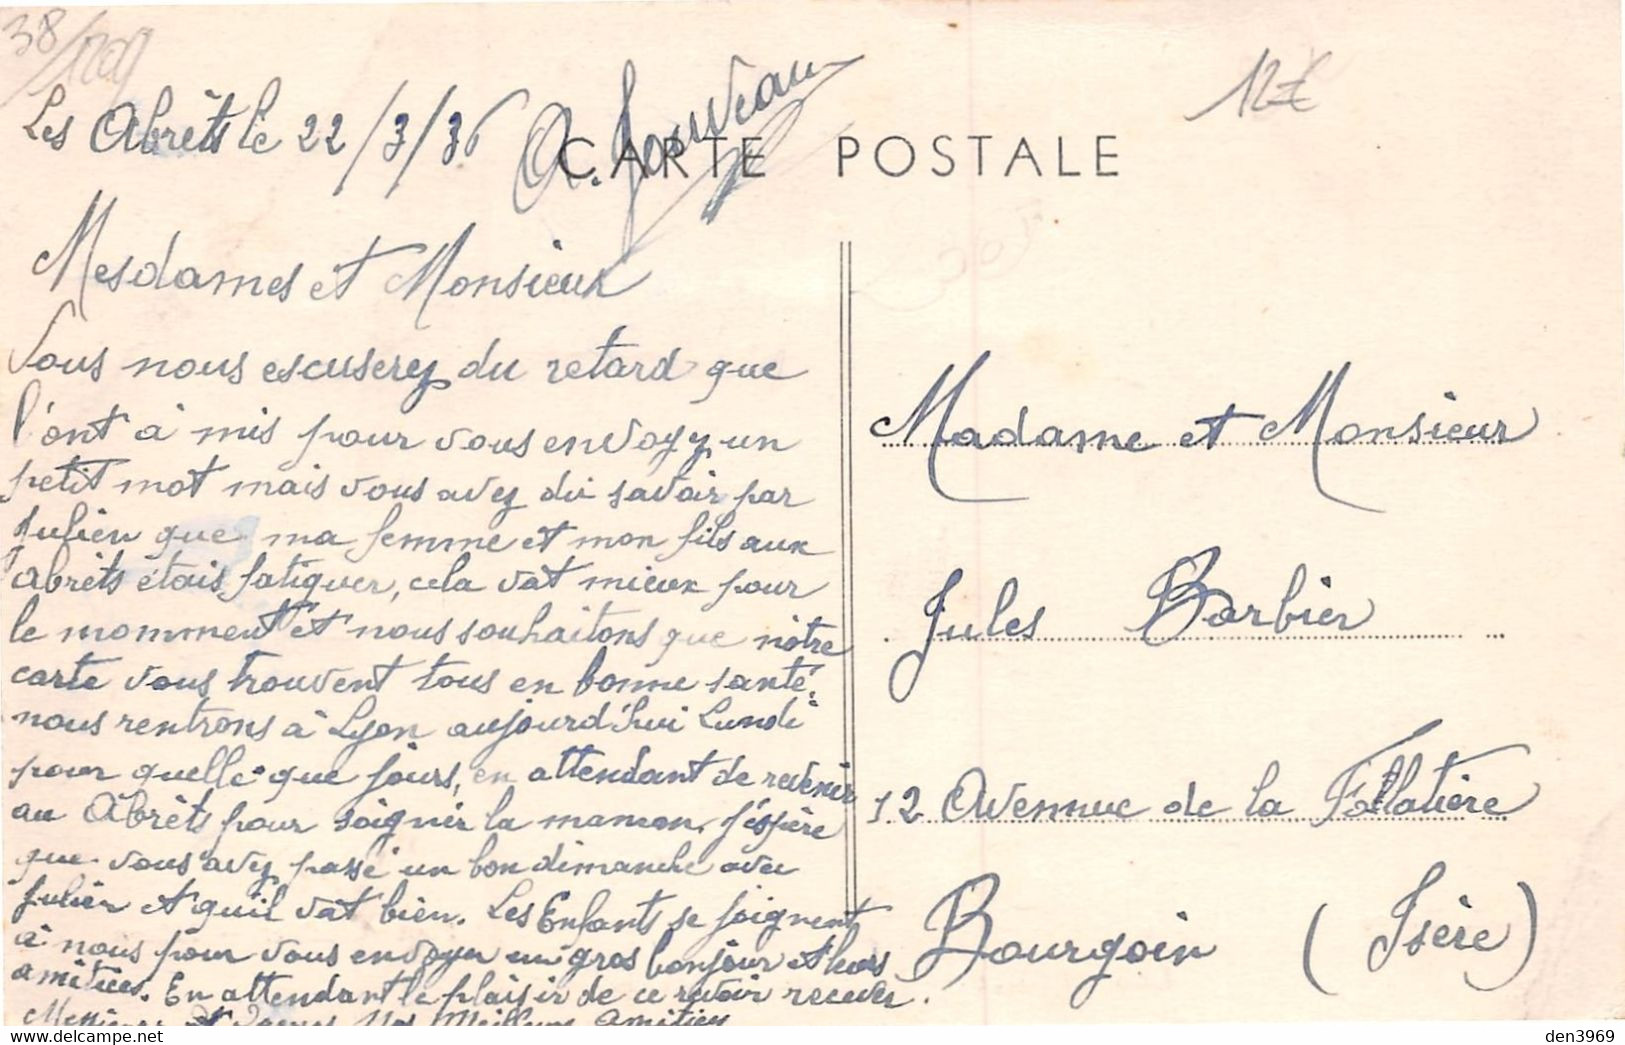 38/1209
12€
Les Abrêts le 22/3/36 A. Jouveau
CARTE POSTALE
Mesdames et Monsieur
Vous nous escuserez du retard que
l'ont à mis pour vous envoyz un
petit mot mais vous avez dû savoir par
Julien que ma femme et mon fils aux
Abrêts étais fatiguer, cela vat mieux pour
le momment et nous souhaitons que nôtre
carte vous trouvent tous en bonne santé.
nous rentrons à Lyon aujourd'hui Lundi
pour quelle que jours, en attendant de revenir
au Abrêts pour soignir la maman. J'éspère
que vous avez passé un bon dimanche avec
Julien et quil vat bien. Les Enfants se joignent
à nous pour vous envoyer un gros bonjour et leurs
amitiées. En attendant le plaisir de ce revoir recever.
Nos Meilleurs Amitiés
Madame et Monsieur
Jules Barbier
12 Avennue de la Follatière
Bourgoin (Isère)
den3969